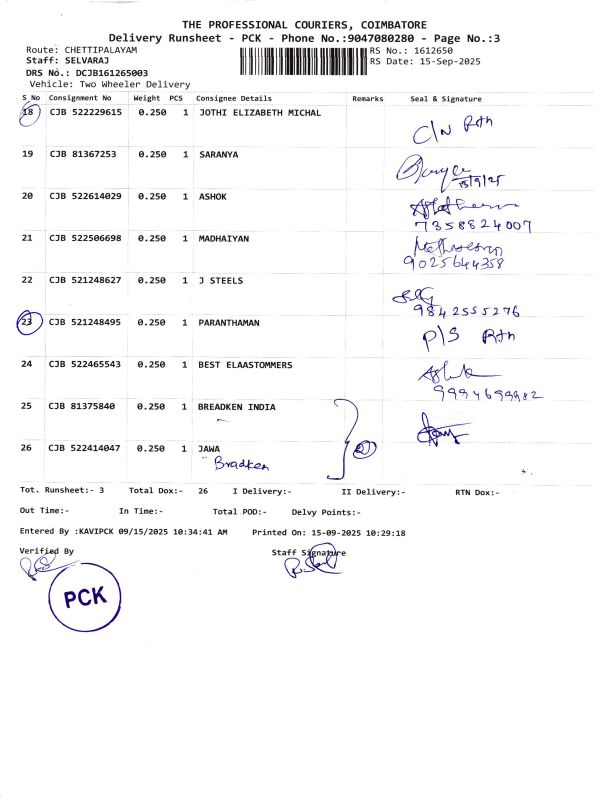 THE PROFESSIONAL COURIERS, COIMBATORE
Delivery Runsheet - PCK - Phone No.:9047080280 - Page No.:3
Route: CHETTIPALAYAM
RS No.: 1612650
Staff: SELVARAJ
RS Date: 15-Sep-2025
DRS No.: DCJB161265003
Vehicle: Two Wheeler Delivery
S_No Consignment No Weight PCS Consignee Details Remarks Seal & Signature
18 CJB 522229615 0.250 1 JOTHI ELIZABETH MICHAL
C/N Rtn
19 CJB 81367253 0.250 1 SARANYA
15/9/25
20 CJB 522614029 0.250 1 ASHOK
7358824007
21 CJB 522506698 0.250 1 MADHAIYAN
9025644358
22 CJB 521248627 0.250 1 J STEELS
9842555276
23 CJB 521248495 0.250 1 PARANTHAMAN
P/S Rtn
24 CJB 522465543 0.250 1 BEST ELAASTOMMERS
9994699982
25 CJB 81375840 0.250 1 BREADKEN INDIA
26 CJB 522414047 0.250 1 JAWA
2
Bradken
Tot. Runsheet:- 3 Total Dox:- 26 I Delivery:- II Delivery:- RTN Dox:-
Out Time:- In Time:- Total POD:- Delvy Points:-
Entered By :KAVIPCK 09/15/2025 10:34:41 AM Printed On: 15-09-2025 10:29:18
Verified By Staff Signature
PCK